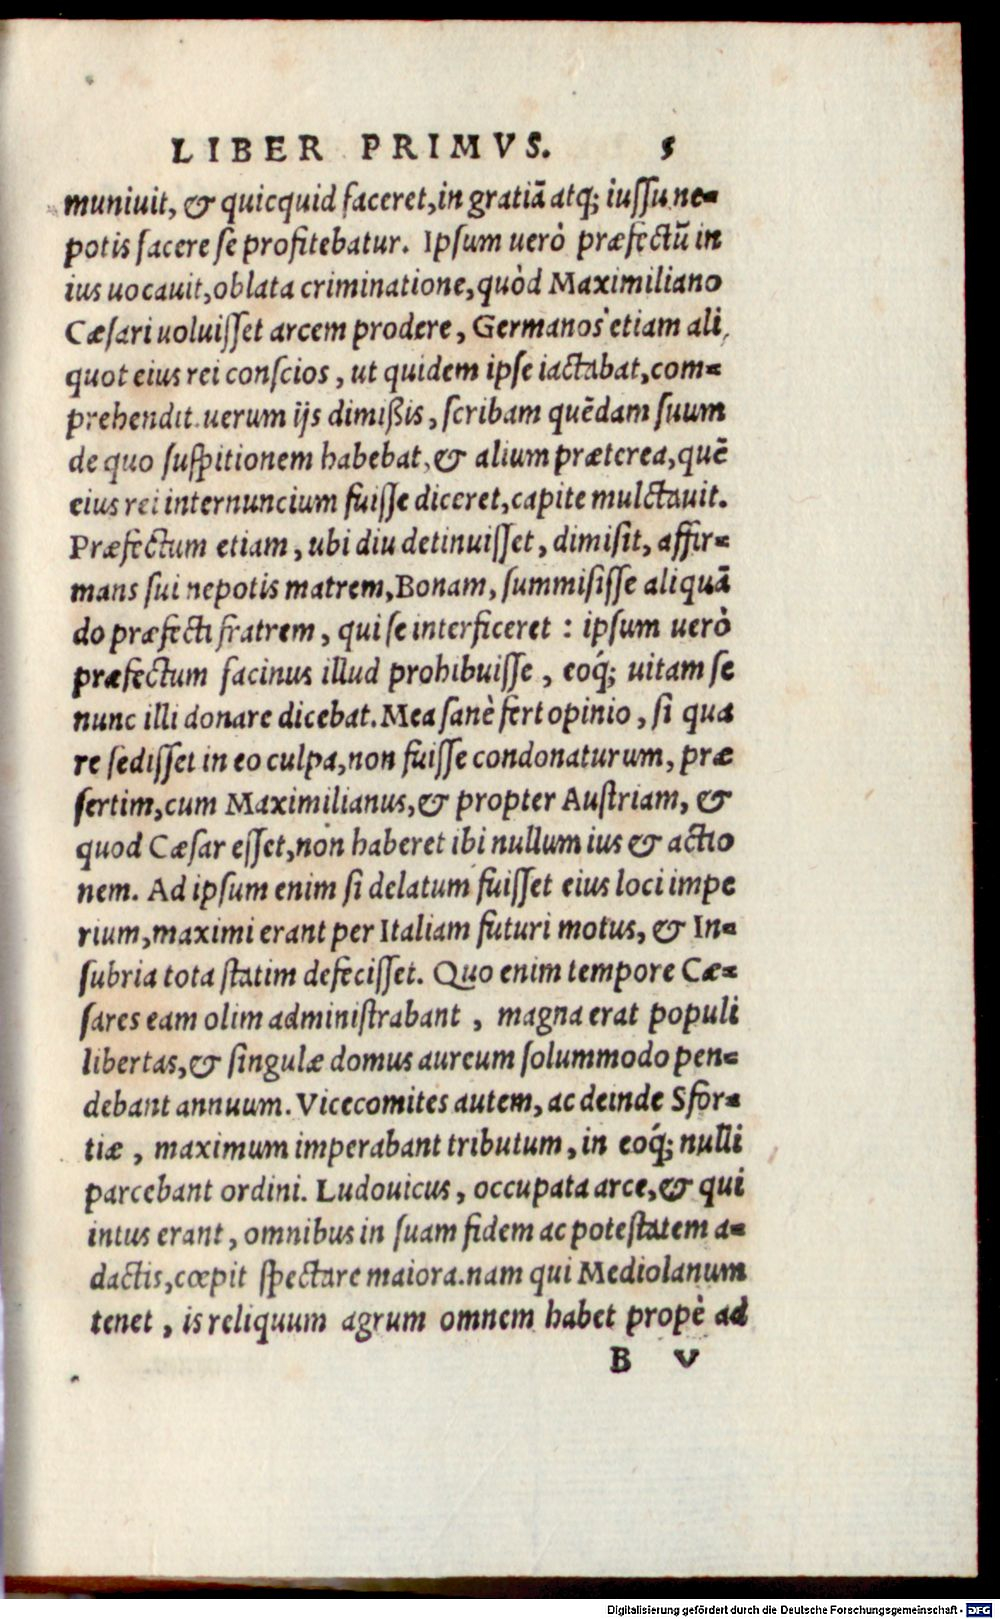 LIBER PRIMVS. 5
muniuit, & quicquid faceret, in gratiā atq; iussu ne-
potis facere se profitebatur. Ipsum uerò præfectū in
ius uocauit, oblata criminatione, quòd Maximiliano
Cæsari uoluisset arcem prodere, Germanos etiam ali,
quot eius rei conscios, ut quidem ipse iactabat, com-
prehendit. uerum ijs dimißis, scribam quēdam suum
de quo suspitionem habebat, & alium præterea, quē
eius rei internuncium fuisse diceret, capite mulctauit.
Præfectum etiam, ubi diu detinuisset, dimisit, affir-
mans sui nepotis matrem, Bonam, summisisse aliquā
do præfecti fratrem, qui se interficeret : ipsum uerò
præfectum facinus illud prohibuisse, eoq́; uitam se
nunc illi donare dicebat. Mea sanè fert opinio, si qua
re sedisset in eo culpa, non fuisse condonaturum, præ
sertim, cum Maximilianus, & propter Austriam, &
quod Cæsar esset, non haberet ibi nullum ius & actio
nem. Ad ipsum enim si delatum fuisset eius loci impe
rium, maximi erant per Italiam futuri motus, & In-
subria tota statim defecisset. Quo enim tempore Cæ-
sares eam olim administrabant, magna erat populi
libertas, & singulæ domus aureum solummodo pen-
debant annuum. Vicecomites autem, ac deinde Sfor-
tiæ, maximum imperabant tributum, in eoq́; nulli
parcebant ordini. Ludouicus, occupata arce, & qui
intus erant, omnibus in suam fidem ac potestatem a-
dactis, cœpit spectare maiora. nam qui Mediolanum
tenet, is reliquum agrum omnem habet propè ad
B v
Digitalisierung gefördert durch die Deutsche Forschungsgemeinschaft - DFG